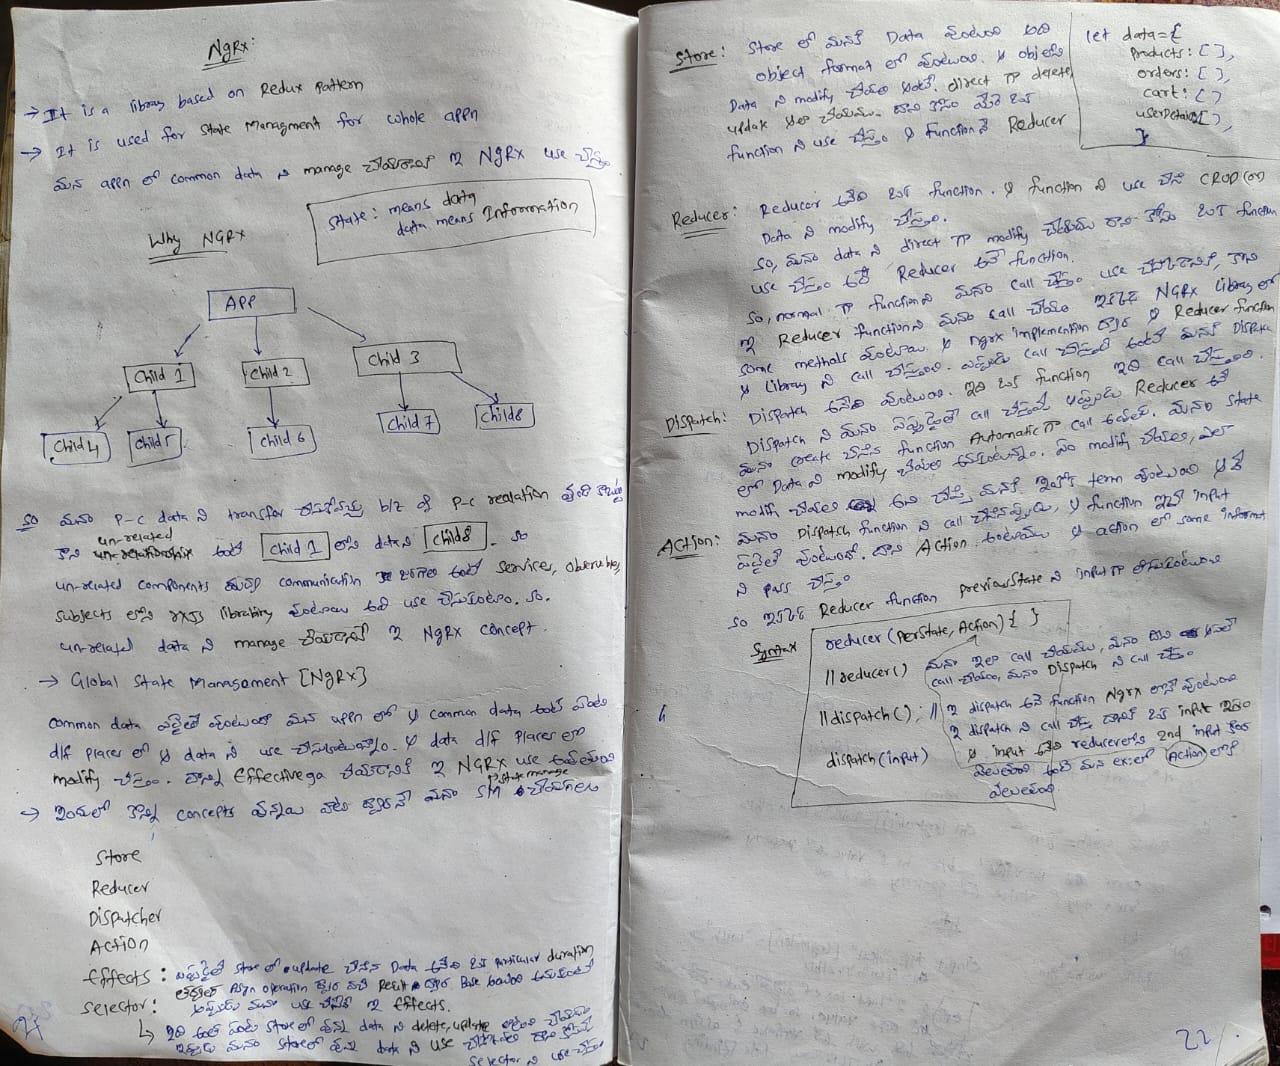 NgRx:
→ It is a library based on Redux pattern
→ It is used for state Managment for whole appn
మన appn లో common data ని manage చేయడానికి ఇ NgRx use చేస్తాం
State: means data
data means Information
Why NGRX
APP
Child 1
Child 2
Child 3
Child 4
Child 5
Child 6
Child 7
Child 8
so మనం P-C data ని transfer చేసుకోవచ్చు b/z of P-C realation వుంది కాబట్టి
un-related
కాని అంటే Child 1 లోని data ని Child 8 . so
un-related components మధ్య communication జరగాలి అంటే services, obervables,
subjects లోని rxjs librabiry వుంటాయి అవి use చేసుకుంటాం. so.
un-related data ని manage చేయడానికే ఇ NgRx concept.
→ Global State Management [NgRx]
common data ఏదైతే వుంటుందో మన appn లో ఆ common data అంటే ఏంటి
d/f places లో ఆ data ని use చేసుకుంటున్నాం. ఆ data d/f places లో
modify చేస్తాం. దాన్ని Effective ga చేయడానికి ఇ NGRX use అవుతుంది
state manage
→ ఇందులో కొన్ని concepts వున్నాయి వాటి ద్వారానే మనం SM చేయగలం
Store
Reducer
Dispatcher
Action
Effects : ఎప్పుడైతే store లో update చేసిన Data అనేది ఒక particular duration
Asyn operation ద్వారా వచ్చే Result ద్వారా Base అయింది అనుకుంటే
అప్పుడు మనం use చేసేదే ఇ Effects.
Selector:
↳ ఇది అంటే ఏంటి store లో వున్న data ని delete, update
ఇప్పుడు మనం store లో వున్న data ని use చేసుకోవాలి దాని కోసమే
selector ని use చేస్తాం
21
Store: Store లో మనకి Data వుంటుంది అది
object format లో వుంటుంది. ఆ object
Data ని modify చేయాలి అంటే. direct గా delete
update అలా చేయము. దాని కోసం వేరే ఒక
function ని use చేస్తాం ఆ function నే Reducer
let data={
products: [ ],
orders: [ ],
cart: [ ]
userDetails[ ],
}
Reducer: Reducer అనేది ఒక function. ఆ function ని use చేసి CRUD (or)
Data ని modify చేస్తాం.
so, మనం data ని direct గా modify చేయము దాని కోసం ఒక function
use చేస్తాం అదే Reducer అనే function.
so, normal గా function ని మనం call చేస్తాం use చేసుకోడానికి, కాని
ఇ Reducer function ని మనం call చేయం ఇక్కడ NGRX Library లో
some methods వుంటాయి. ఆ ngrx implementation ద్వారా ఆ Reducer function
ఆ Library ని call చేస్తుంది. ఎప్పుడు call చేస్తుంది అంటే మనకి Dispatch
Dispatch: Dispatch అనేది వుంటుంది. ఇది ఒక function ఇది call చేస్తుంది.
Dispatch ని మనం ఎప్పుడైతే call చేస్తామో అప్పుడు Reducer అనే
మనం create చేసిన function Automatic గా call అవుతుంది. మనం state
లో Data ని modify చేయాలి అనుకుంటున్నాం. ఏం modify చేయాలి, ఎలా
modify చేయాలి అని చెప్పే మనకి ఇంకో term వుంటుంది ఆ దే
Action: మనం Dispatch function ని call చేసినప్పుడు, ఆ function ఇచ్చే input
ఏదైతే వుంటుందో. దాని Action అంటాము ఆ action లో some informat
ని pass చేస్తాం
so ఇక్కడ Reducer function previousState ని input గా తీసుకుంటుంది
Syntax
reducer(perState, Action) { }
//reducer() మనం ఇలా call చేయము, మనం
call చేయం, మనం Dispatch ని call చేస్తాం
//dispatch(); // ఇ dispatch అనే function Ngrx లోనే వుంటుంది
ఇ dispatch ని call చేస్తే దానికి ఒక input ఇస్తాం
dispatch(input) ఆ input అనేది reducer లోని 2nd input కింద
వెలుతుంది అంటే మన ex: లో Action లోకి
వెలుతుంది
22